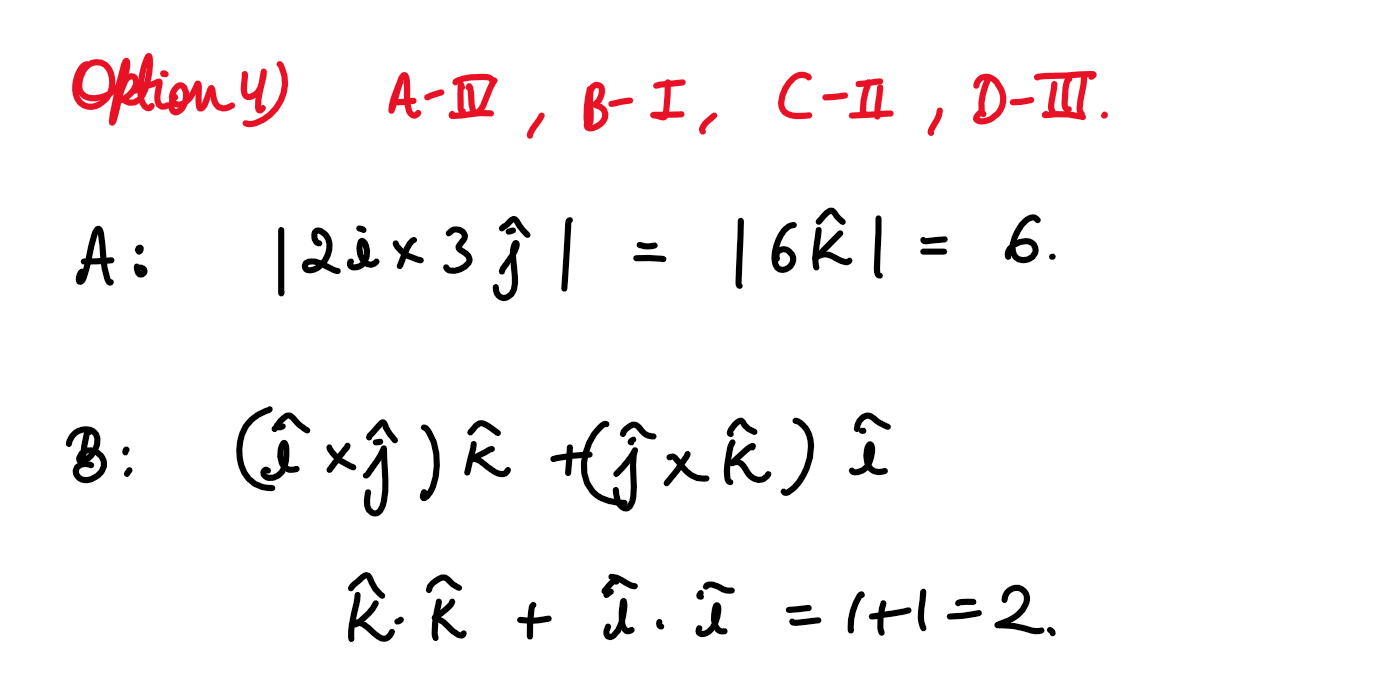 Option 4) A-IV, B-I, C-II, D-III.
A: |2i × 3ĵ| = |6k̂| = 6.
B: (î × ĵ) k̂ + (ĵ × k̂) î
k̂. k̂ + î . î = 1+1=2.